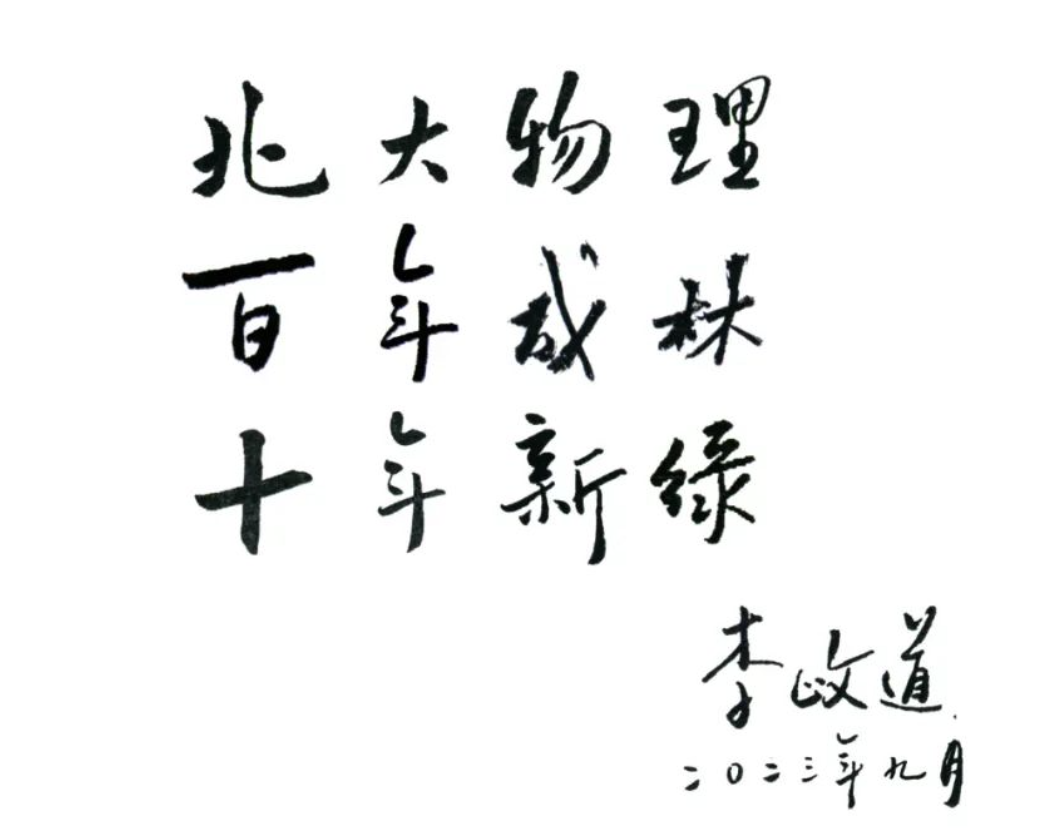 北大物理
百年成林
十年新綠
李政道
二〇二三年九月